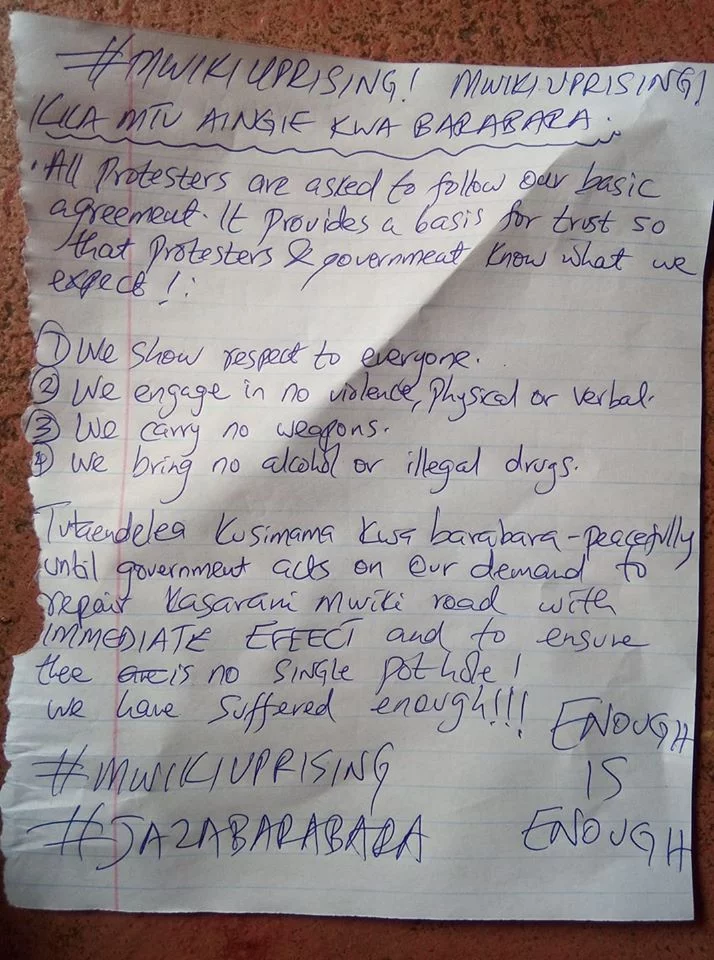 #MWIKIUPRISING! MWIKIUPRISING!
KILA MTU AINGIE KWA BARABARA.
• All Protesters are asked to follow our basic
agreement. It provides a basis for trust so
that protesters & government know what we
expect!:
① We show respect to everyone.
② We engage in no violence, physical or verbal.
③ We carry no weapons.
④ We bring no alcohol or illegal drugs.
Tutaendelea Kusimama Kwa barabara - peacefully
until government acts on our demand to
repair Kasarani Mwiki road with
IMMEDIATE EFFECT and to ensure
thee is no SINGLE pothole!
we have suffered enough!!!
ENOUGH
IS
ENOUGH
#MWIKIUPRISING
#JAZABARABARA